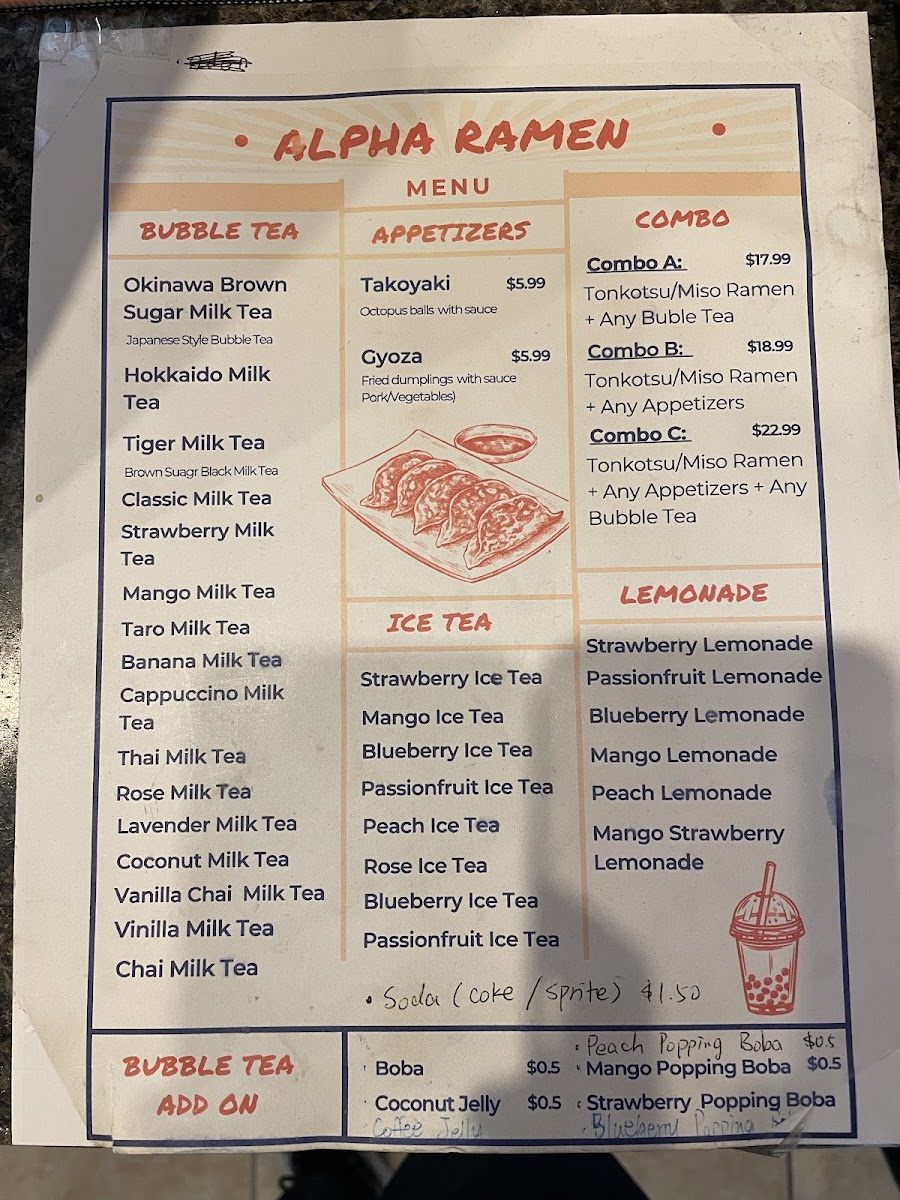 ALPHA RAMEN
MENU
BUBBLE TEA
Okinawa Brown
Sugar Milk Tea
Japanese Style Bubble Tea
Hokkaido Milk
Tea
Tiger Milk Tea
Brown Suagr Black Milk Tea
Classic Milk Tea
Strawberry Milk
Tea
Mango Milk Tea
Taro Milk Tea
Banana Milk Tea
Cappuccino Milk
Tea
Thai Milk Tea
Rose Milk Tea
Lavender Milk Tea
Coconut Milk Tea
Vanilla Chai Milk Tea
Vinilla Milk Tea
Chai Milk Tea
APPETIZERS
Takoyaki $5.99
Octopus balls with sauce
Gyoza $5.99
Fried dumplings with sauce
Pork/Vegetables)
ICE TEA
Strawberry Ice Tea
Mango Ice Tea
Blueberry Ice Tea
Passionfruit Ice Tea
Peach Ice Tea
Rose Ice Tea
Blueberry Ice Tea
Passionfruit Ice Tea
COMBO
Combo A: $17.99
Tonkotsu/Miso Ramen
+ Any Buble Tea
Combo B: $18.99
Tonkotsu/Miso Ramen
+ Any Appetizers
Combo C: $22.99
Tonkotsu/Miso Ramen
+ Any Appetizers + Any
Bubble Tea
LEMONADE
Strawberry Lemonade
Passionfruit Lemonade
Blueberry Lemonade
Mango Lemonade
Peach Lemonade
Mango Strawberry
Lemonade
• Soda (coke / sprite) $1.50
BUBBLE TEA
ADD ON
Boba $0.5
Coconut Jelly $0.5
Coffee Jelly
• Peach Popping Boba $0.5
Mango Popping Boba $0.5
Strawberry Popping Boba
Blueberry Popping